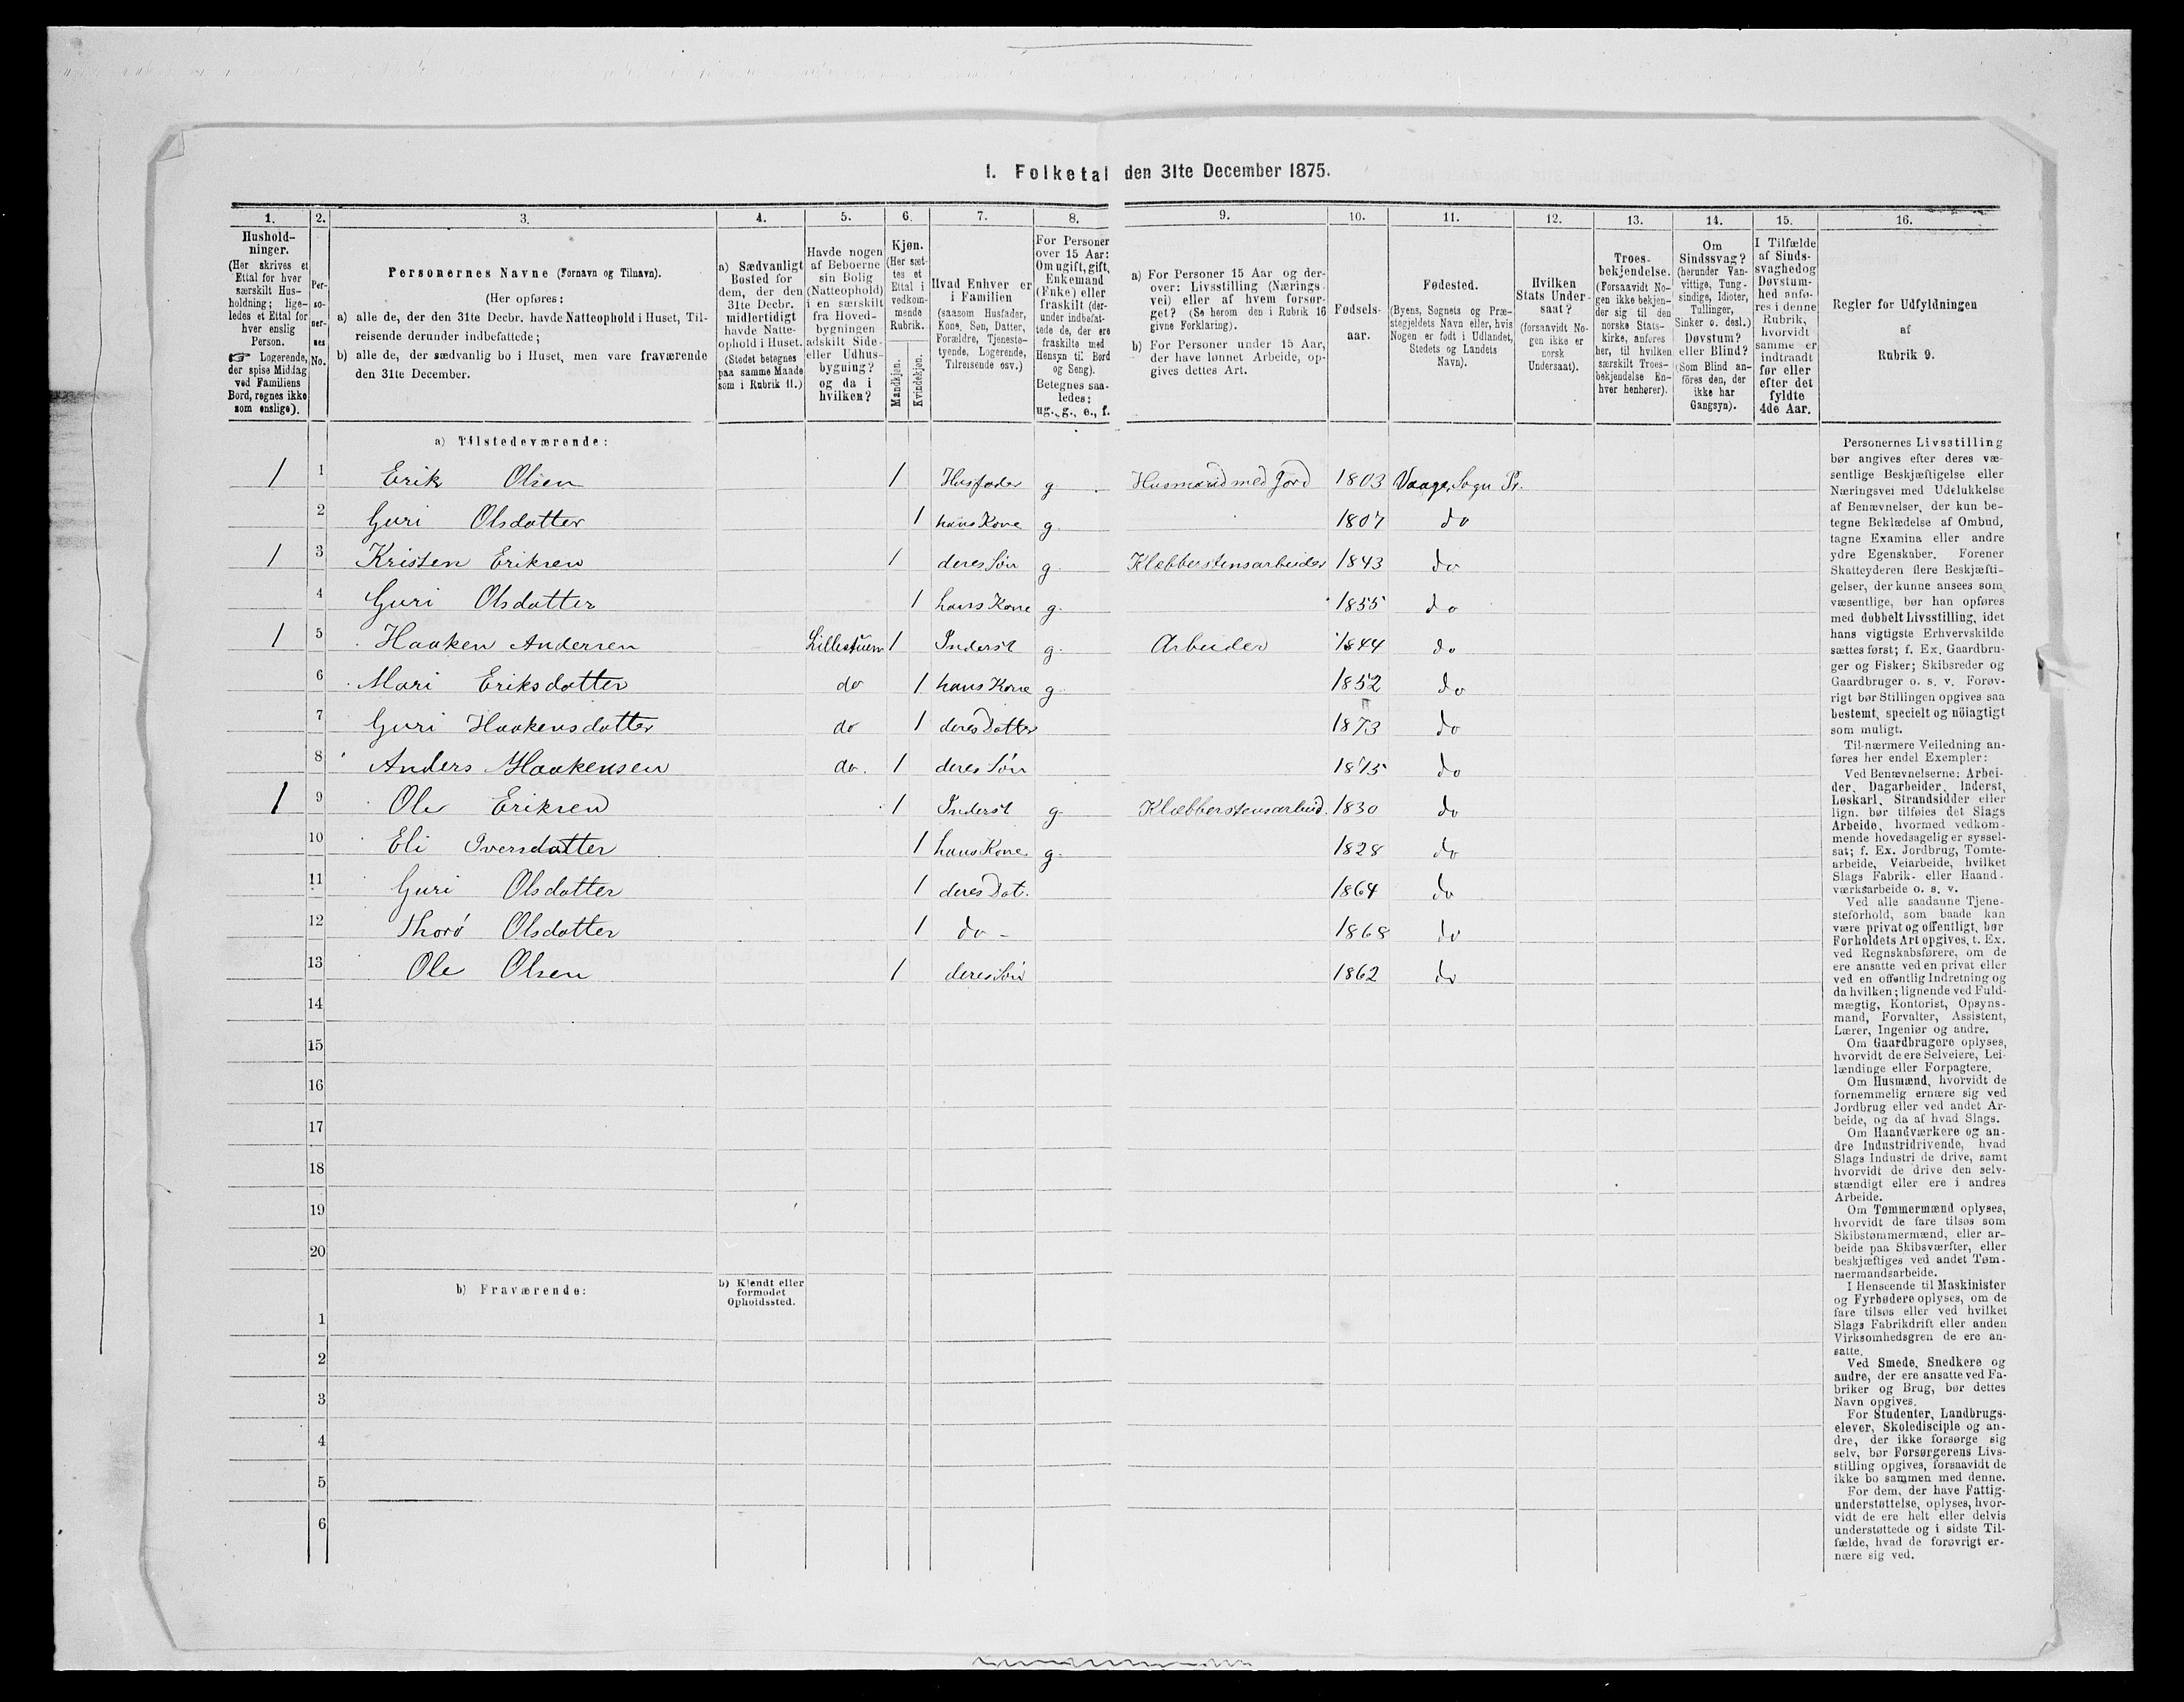 I. Folketal den 31te December 1875.
1. 2. 3. 4. 5. 6. 7. 8. 9. 10. 11. 12. 13. 14. 15. 16.
Hushold-
ninger.
(Her skrives et
Ettal for hver
særskilt Hus-
holdning; lige-
ledes et Ettal for
hver enslig
Person.
☞ Logerende,
der spise Middag
ved Familiens
Bord, regnes ikke
som enslige).
Per-
so-
ner-
nes
No.
Personernes Navne (Fornavn og Tilnavn).
(Her opføres:
a) alle de, der den 31te Decbr. havde Natteophold i Huset, Til-
reisende derunder indbefattede;
b) alle de, der sædvanlig bo i Huset, men vare fraværende
den 31te December.
a) Sædvanligt
Bosted for
dem, der den
31te Decbr.
midlertidigt
havde Natte-
ophold i Huset.
(Stedet betegnes
paa samme Maade
som i Rubrik 11.)
Havde nogen
af Beboerne
sin Bolig
(Natteophold)
i en særskilt
fra Hoved-
bygningen
adskilt Side-
eller Udhus-
bygning?
og da i
hvilken?
Kjøn.
(Her sæt-
tes et
Ettal i
vedkom-
mende
Rubrik.
Mandkjøn.
Kvindekjøn.
Hvad Enhver er
i Familien
(saasom Husfader,
Kone, Søn, Datter,
Forældre, Tjenesto-
tyende, Logerende,
Tilreisende osv.)
For Personer
over 15 Aar:
Om ugift, gift,
Enkemand
(Enke) eller
fraskilt (der-
under indbefat-
tede de, der ere
fraskilte med
Hensyn til Bord
og Seng).
Betegnes saa-
ledes:
ug., g., e., f.
a) For Personer 15 Aar og der-
over: Livsstilling (Nærings-
vei) eller af hvem forsør-
get? (Se herom den i Rubrik 16
givne Forklaring).
b) For Personer under 15 Aar,
der have lønnet Arbeide, op-
gives dettes Art.
Fødsels-
aar.
Fødested.
(Byens, Sognets og Præ-
stegjeldets Navn eller, hvis
Nogen er født i Udlandet,
Stedets og Landets
Navn).
Hvilken
Stats Under-
saat?
(forsaavidt No-
gen ikke er
norsk
Undersaat).
Troes-
bekjendelse.
(Forsaavidt No-
gen ikke bekjen-
der sig til den
norske Stats-
kirke, anføres
her, til hvilken
særskilt Troes-
bekjendelse En-
hver henhører).
Om
Sindssvag?
(herunder Van-
vittige, Tung-
sindige, Idioter,
Tullinger,
Sinker o. desl.)
Døvstum?
eller Blind?
(Som Blind an-
føres den, der
ikke har
Gangsyn).
I Tilfælde
af Sinds-
svaghedog
Døvstum-
hed anfø-
res i denne
Rubrik,
hvorvidt
samme er
indtraadt
før eller
efter det
fyldte
4de Aar.
Regler for Udfyldningen
af
Rubrik 9.
a) Tilstedeværende:
1 1 Erik Olsen 1 Husfader g Husmand med Jord 1803 Vaage Sogn Pr.
2 Guri Olsdatter 1 hans Kone g 1807 do
1 3 Kristen Eriksen 1 deres Søn g. Klæbberstensarbeider 1843 do
4 Guri Olsdatter 1 hans Kone g. 1855 do
1 5 Haaken Andersen Lillestuen 1 Inderst g. Arbeider 1844 do
6 Mari Eriksdatter do 1 hans Kone g 1852 do
7 Guri Haakensdatter do 1 deres Datter 1873 do
8 Anders Haakensen do. 1 deres Søn 1875 do
1 9 Ole Eriksen 1 Inderst g Klæbberstensarbeid. 1830 do
10 Eli Iversdatter 1 hans Kone g. 1828 do
11 Guri Olsdatter 1 deres Dat. 1864 do
12 Thorø Olsdatter 1 do - 1868 do
13 Ole Olsen 1 deres Søn 1862 do
14
15
16
17
18
19
20
b) Fraværende:
b) Kjendt eller
formodet
Opholdssted.
1
2
3
4
5
6
Personernes Livsstilling
bør angives efter deres væ-
sentlige Beskjæftigelse eller
Næringsvei med Udelukkelse
af Benævnelser, der kun be-
tegne Beklædelse af Ombud,
tagne Examina eller andre
ydre Egenskaber. Forener
Skatteyderen flere Beskjæfti-
gelser, der kunne ansees som
væsentlige, bør han opføres
med dobbelt Livsstilling, idet
hans vigtigste Erhvervskilde
sættes først; f. Ex. Gaardbru-
ger og Fisker; Skibsreder og
Gaardbruger o. s. v. Forøv-
rigt bør Stillingen opgives saa
bestemt, specielt og nöiagtigt
som muligt.
Til nærmere Veiledning an-
føres her endel Exempler:
Ved Benævnelserne: Arbei-
der, Dagarbeider, Inderst,
Løskarl, Strandsidder eller
lign. bør tilføies det Slags
Arbeide, hvormed vedkom-
mende hovedsagelig er syssel-
sat; f. Ex. Jordbrug, Tomte-
arbeide, Veiarbeide, hvilket
Slags Fabrik- eller Haand-
værksarbeide o. s. v.
Ved alle saadanne Tjene-
steforhold, som baade kan
være privat og offentligt, bør
Forholdets Art opgives, t. Ex.
ved Regnskabsførere, om de
ere ansatte ved en privat eller
ved en offentlig Indretning og
da hvilken; lignende ved Fuld-
mægtig, Kontorist, Opsyns-
mand, Forvalter, Assistent,
Lærer, Ingeniør og andre.
Om Gaardbrugere oplyses,
hvorvidt de ere Selveiere, Lei-
lændinge eller Forpagtere.
Om Husmænd, hvorvidt de
fornemmelig ernære sig ved
Jordbrug eller ved andet Ar-
beide, og da af hvad Slags.
Om Haandværkere og an-
dre Industridrivende, hvad
Slags Industri de drive, samt
hvorvidt de drive den selv-
stændigt eller ere i andres
Arbeide.
Om Tømmermænd oplyses,
hvorvidt de fare tilsøs som
Skibstømmermænd, eller ar-
beide paa Skibsværfter, eller
beskjæftiges ved andet Tøm-
mermandsarbeide.
I Henseende til Maskinister
og Fyrbødere oplyses, om de
fare tilsøs eller ved hvilket
Slags Fabrikdrift eller anden
Virksomhedsgren de ere an-
satte.
Ved Smede, Snedkere og
andre, der ere ansatte ved Fa-
briker og Brug, bør dettes
Navn opgives.
For Studenter, Landbrugs-
elever, Skoledisciple og an-
dre, der ikke forsørge sig
selv, bør Forsørgerens Livs-
stilling opgives, forsaavidt de
ikke bo sammen med denne.
For dem, der have Fattig-
understøttelse, oplyses, hvor-
vidt de ere helt eller delvis
understøttede og i sidste Til-
fælde, hvad de forøvrigt er-
nære sig ved.